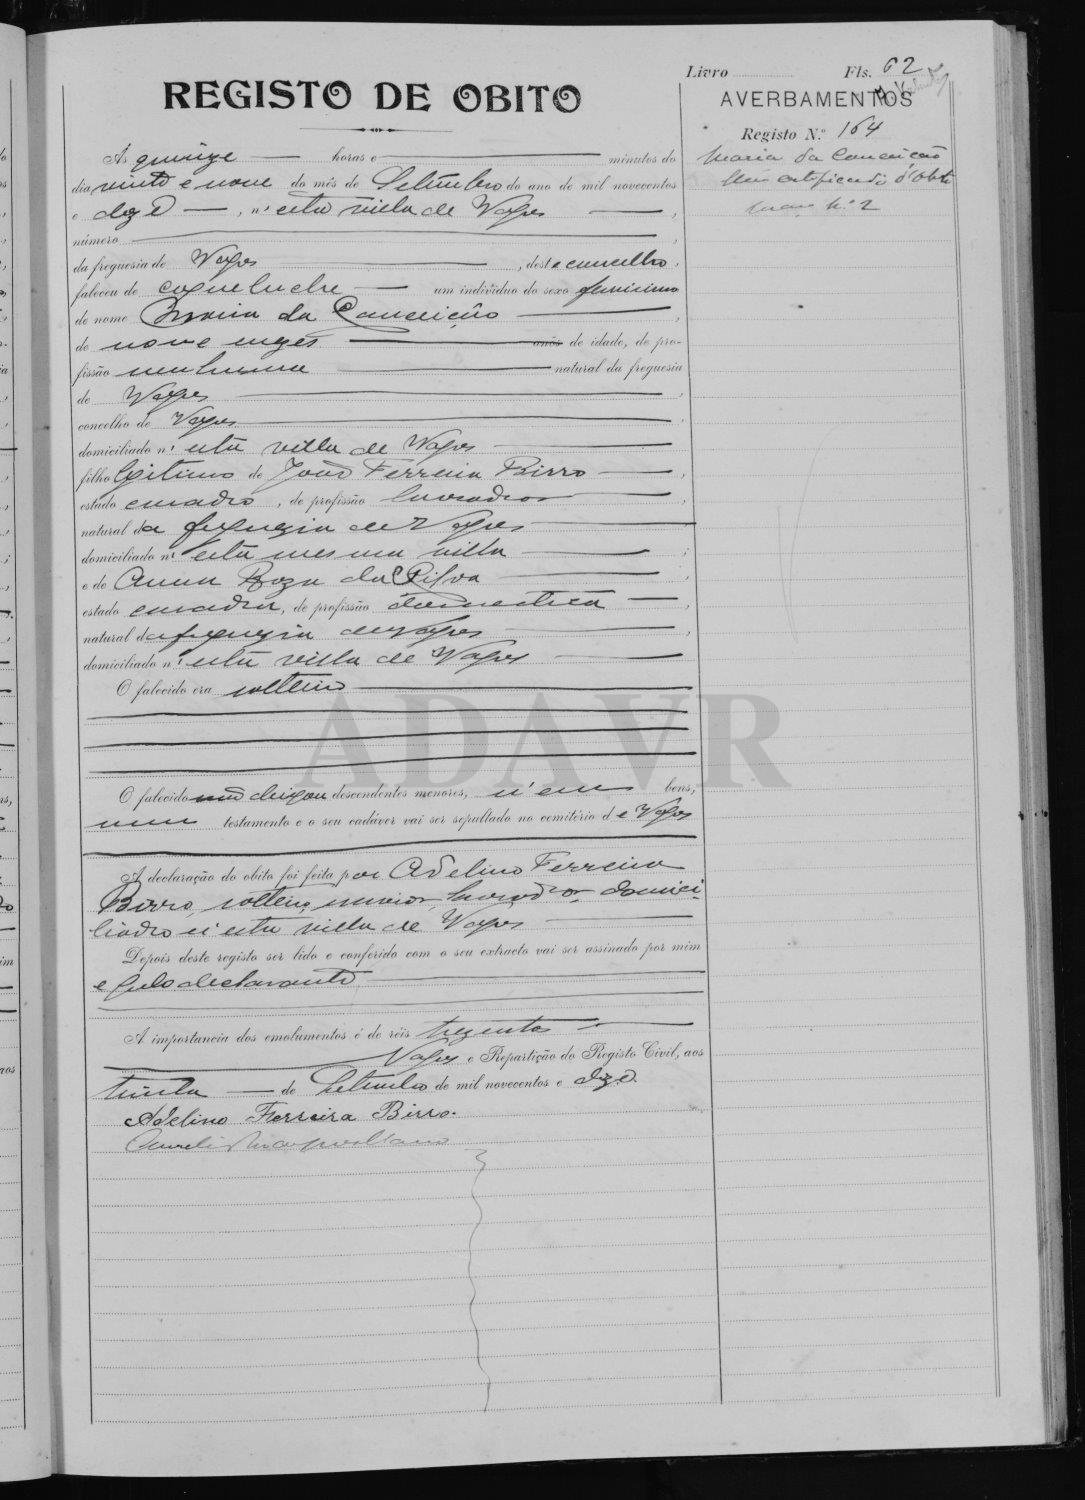 Livro Fls. 62
REGISTO DE OBITO
AVERBAMENTOS
Registo N.º 164
Maria da Conceição
certificado d'obito
N.º 2
Ás quinze horas e minutos do
dia vinte e nove do mês de Setembro do ano de mil novecentos
e doze, n'esta villa de Vagos,
número
da freguesia de Vagos, deste concelho,
faleceu de coqueluche um indivíduo do sexo feminino
de nome Maria da Conceição,
de nove mezes anos de idade, de pro-
fissão nenhuma natural da freguesia
de Vagos,
concelho de Vagos
domiciliado n'esta villa de Vagos
filho legitimo de João Ferreira Birro,
estado casado, de profissão lavrador,
natural da freguezia de Vagos
domiciliado n'esta mesma villa;
e de Anna Roza da Silva,
estado casada, de profissão domestica,
natural da freguezia de Vagos,
domiciliado n'esta villa de Vagos
O falecido era solteiro
ADAVR
O falecido não deixou descendentes menores, nem bens,
nem testamento e o seu cadáver vai ser sepultado no cemitério de Vagos
A declaração do obito foi feita por Adelino Ferreira
Birro, solteiro, maior, lavrador, domici-
liado n'esta villa de Vagos
Depois deste registo ser lido e conferido com o seu extracto vai ser assinado por mim
e pelo declarante
A importancia dos emolumentos é de réis trezentos
Vagos e Repartição do Registo Civil, aos
trinta de Setembro de mil novecentos e doze.
Adelino Ferreira Birro.